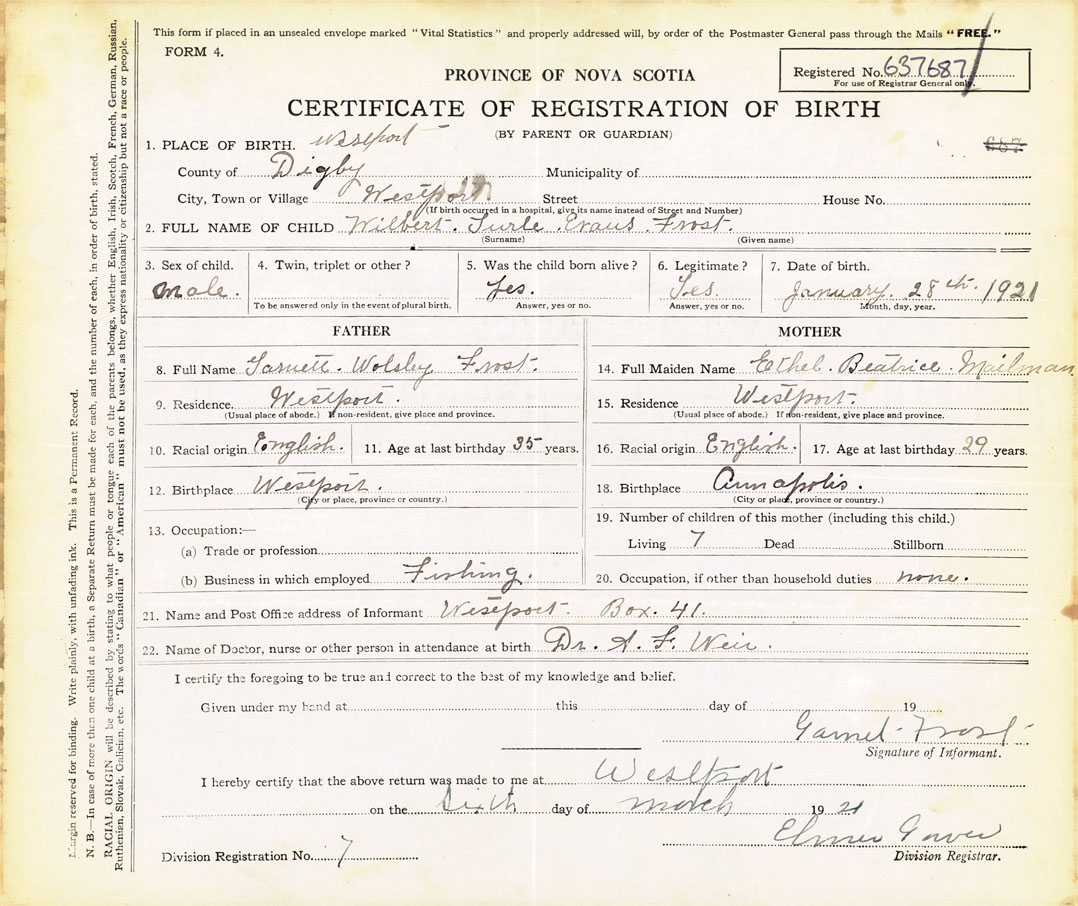 This form if placed in an unsealed envelope marked "Vital Statistics" and properly addressed will, by order of the Postmaster General pass through the Mails "FREE."
FORM 4.
PROVINCE OF NOVA SCOTIA
Registered No. 637687
For use of Registrar General only.
CERTIFICATE OF REGISTRATION OF BIRTH
(BY PARENT OR GUARDIAN)
687
1. PLACE OF BIRTH. Westport
County of Digby Municipality of
City, Town or Village Westport Street House No.
(If birth occurred in a hospital, give its name instead of Street and Number)
2. FULL NAME OF CHILD Wilbert. Surle Evans. Frost.
(Surname) (Given name)
3. Sex of child. 4. Twin, triplet or other? 5. Was the child born alive? 6. Legitimate? 7. Date of birth.
male. Yes. Yes. January. 28th. 1921
To be answered only in the event of plural birth. Answer, yes or no. Answer, yes or no. Month, day, year.
FATHER MOTHER
8. Full Name Garnett. Wolsley Frost. 14. Full Maiden Name Ethel. Beatrice. Mailman
9. Residence. Westport. 15. Residence Westport.
(Usual place of abode.) If non-resident, give place and province. (Usual place of abode.) If non-resident, give place and province.
10. Racial origin English. 11. Age at last birthday 35 years. 16. Racial origin English. 17. Age at last birthday 29 years.
12. Birthplace Westport. 18. Birthplace Annapolis.
(City or place, province or country.) (City or place, province or country.)
13. Occupation:— 19. Number of children of this mother (including this child.)
(a) Trade or profession Living 7 Dead Stillborn
(b) Business in which employed Fishing. 20. Occupation, if other than household duties none.
21. Name and Post Office address of Informant Westport. Box. 41.
22. Name of Doctor, nurse or other person in attendance at birth Dr. A. F. Weir.
I certify the foregoing to be true and correct to the best of my knowledge and belief.
Given under my hand at this day of 19
Garnet Frost
Signature of Informant.
I hereby certify that the above return was made to me at Westport
on the Sixth day of March 1921
Elmer Gower
Division Registrar.
Division Registration No. 7
Margin reserved for binding. Write plainly, with unfading ink. This is a Permanent Record.
N. B.—In case of more than one child at a birth, a Separate Return must be made for each, and the number of each, in order of birth, stated.
RACIAL ORIGIN will be described by stating to what people or tongue each of the parents belongs, whether English, Irish, Scotch, French, German, Russian,
Ruthenian, Slovak, Galician, etc. The words "Canadian" or "American" must not be used, as they express nationality or citizenship but not a race or people.